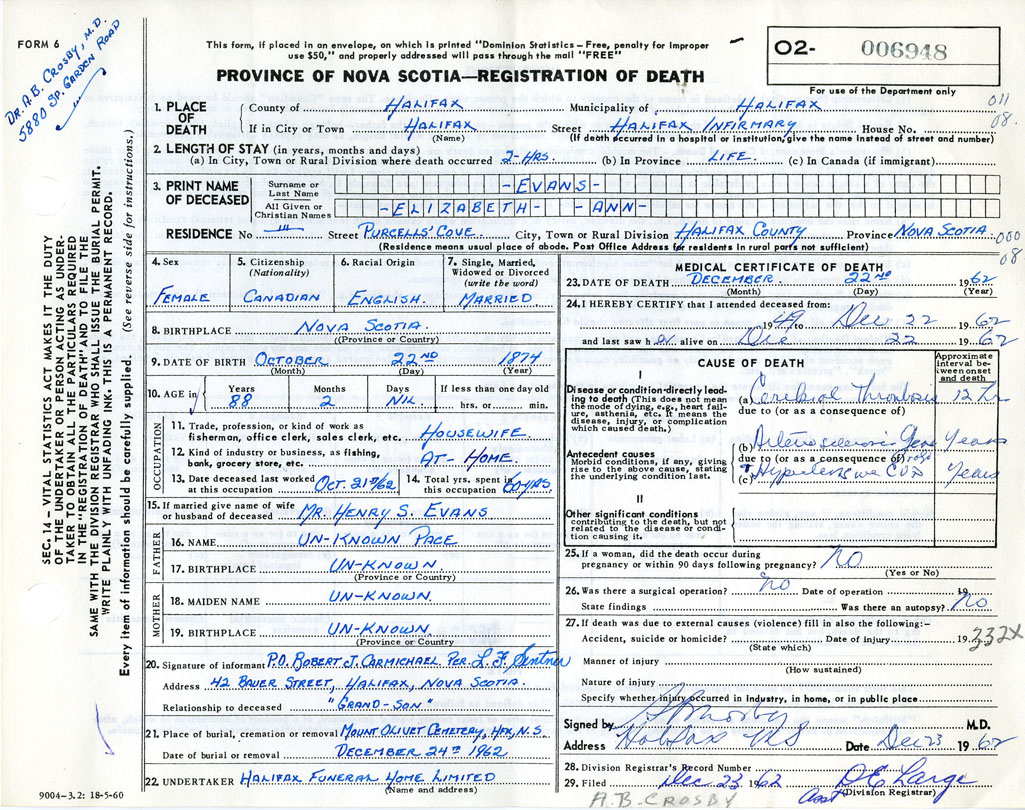 FORM 6
DR. A.B. CROSBY, M.D.
5880 SP. GARDEN ROAD
This form, if placed in an envelope, on which is printed "Dominion Statistics – Free, penalty for improper
use $50," and properly addressed will pass through the mail "FREE"
O2- 006948
PROVINCE OF NOVA SCOTIA—REGISTRATION OF DEATH
For use of the Department only
1. PLACE OF DEATH County of HALIFAX Municipality of HALIFAX 011
If in City or Town HALIFAX Street HALIFAX INFIRMARY House No. 08.
(Name) (If death occurred in a hospital or institution, give the name instead of street and number)
2. LENGTH OF STAY (in years, months and days)
(a) In City, Town or Rural Division where death occurred 2-HRS. (b) In Province LIFE. (c) In Canada (if immigrant)
3. PRINT NAME OF DECEASED Surname or Last Name -EVANS-
All Given or Christian Names -ELIZABETH- -ANN-
RESIDENCE No Street PURCELLS' COVE City, Town or Rural Division HALIFAX COUNTY Province NOVA SCOTIA. 000
(Residence means usual place of abode. Post Office Address for residents in rural parts not sufficient) 08
4. Sex 5. Citizenship (Nationality) 6. Racial Origin 7. Single, Married, Widowed or Divorced (write the word)
FEMALE CANADIAN ENGLISH. MARRIED
8. BIRTHPLACE NOVA SCOTIA.
(Province or Country)
9. DATE OF BIRTH OCTOBER 22ND 1874
(Month) (Day) (Year)
10. AGE in Years Months Days If less than one day old
88 2 NIL hrs. or min.
OCCUPATION
11. Trade, profession, or kind of work as
fisherman, office clerk, sales clerk, etc. HOUSEWIFE.
12. Kind of industry or business, as fishing,
bank, grocery store, etc. AT-HOME.
13. Date deceased last worked at this occupation OCT. 21ST/62 14. Total yrs. spent in this occupation 60-YRS.
15. If married give name of wife
or husband of deceased MR. HENRY S. EVANS
FATHER
16. NAME UN-KNOWN PACE
17. BIRTHPLACE UN-KNOWN.
(Province or Country)
MOTHER
18. MAIDEN NAME UN-KNOWN.
19. BIRTHPLACE UN-KNOWN.
(Province or Country
20. Signature of informant P.O. ROBERT J. CARMICHAEL PER. L. F.
Address 42 BAUER STREET, HALIFAX, NOVA SCOTIA.
Relationship to deceased "GRAND-SON"
21. Place of burial, cremation or removal MOUNT OLIVET CEMETERY, HFX, N.S.
Date of burial or removal DECEMBER 24TH 1962
22. UNDERTAKER HALIFAX FUNERAL HOME LIMITED
(Name and address)
9004-3.2: 18-5-60
SEC. 14 – VITAL STATISTICS ACT MAKES IT THE DUTY
OF THE UNDERTAKER OR PERSON ACTING AS UNDER-
TAKER TO OBTAIN ALL THE PARTICULARS REQUIRED
IN THE "REGISTRATION OF DEATH" AND TO FILE THE
SAME WITH THE DIVISION REGISTRAR WHO SHALL ISSUE THE BURIAL PERMIT.
WRITE PLAINLY WITH UNFADING INK. THIS IS A PERMANENT RECORD.
Every item of information should be carefully supplied. (See reverse side for instructions.)
MEDICAL CERTIFICATE OF DEATH
23. DATE OF DEATH DECEMBER 22ND 1962
(Month) (Day) (Year)
24. I HEREBY CERTIFY that I attended deceased from:
1949 to Dec 22 1962
and last saw her alive on Dec 22 1962
CAUSE OF DEATH
Approximate interval between onset and death
I
Disease or condition directly lead-
ing to death (This does not mean
the mode of dying, e.g., heart fail-
ure, asthenia, etc. It means the
disease, injury, or complication
which caused death.)
(a) Cerebral Thrombosis 12 hr
due to (or as a consequence of)
Antecedent causes
Morbid conditions, if any, giving
rise to the above cause, stating
the underlying condition last.
(b) Arteriosclerosis Gen Years
due to (or as a consequence of)
(c) Hypertensive CVD Years
II
Other significant conditions
contributing to the death, but not
related to the disease or condi-
tion causing it.
25. If a woman, did the death occur during
pregnancy or within 90 days following pregnancy? NO
(Yes or No)
26. Was there a surgical operation? no Date of operation 19
State findings Was there an autopsy? No
27. If death was due to external causes (violence) fill in also the following:–
Accident, suicide or homicide? Date of injury 19 332X
(State which)
Manner of injury
(How sustained)
Nature of injury
Specify whether injury occurred in industry, in home, or in public place
Signed by M.D.
Address Halifax NS Date Dec 23 1962
28. Division Registrar's Record Number
29. Filed Dec 23 1962 D.E. Large
Asst (Division Registrar)
A.B. CROSBY